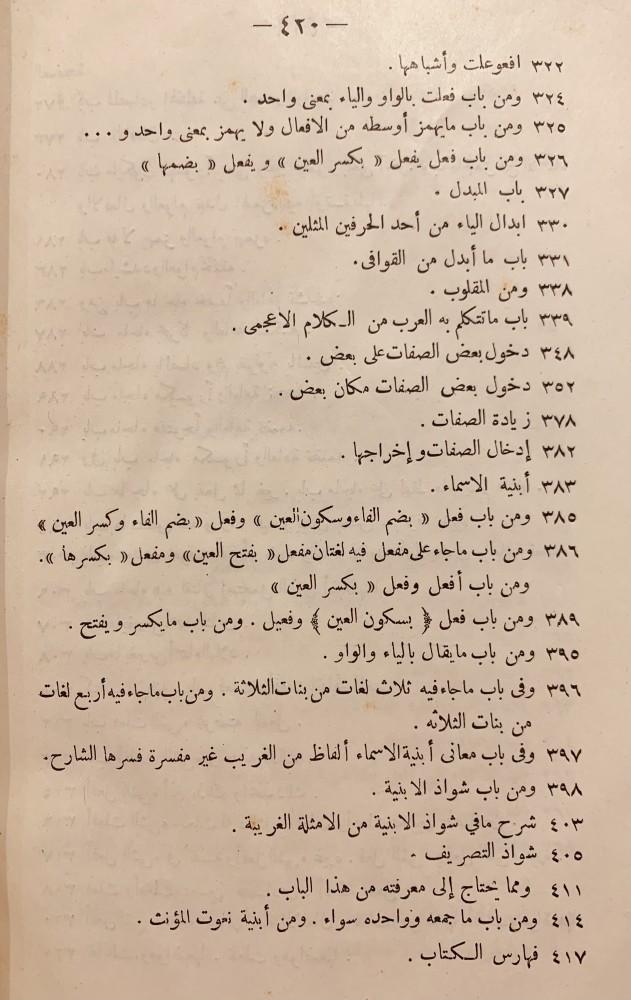 — ٤٢٠ —
٣٢٢ افعوعلت وأشباهها .
٣٢٤ ومن باب فعلت بالواو والياء بمعنى واحد .
٣٢٥ ومن باب مايهمز أوسطه من الافعال ولا يهمز بمعنى واحد و ...
٣٢٦ ومن باب فعل يفعل « بكسر العين » و يفعل « بضمها »
٣٢٧ باب المبدل .
٣٣٠ ابدال الياء من أحد الحرفين المثلين .
٣٣١ باب ما أبدل من القوافى .
٣٣٨ ومن المقلوب .
٣٣٩ باب ماتتكلم به العرب من الكلام الاعجمى .
٣٤٨ دخول بعض الصفات على بعض .
٣٥٢ دخول بعض الصفات مكان بعض .
٣٧٨ زيادة الصفات .
٣٨٢ إدخال الصفات وإخراجها .
٣٨٣ أبنية الاسماء .
٣٨٥ ومن باب فعل « بضم الفاء وسكون العين » وفعل « بضم الفاء وكسر العين »
٣٨٦ ومن باب ماجاء على مفعل فيه لغتان مفعل « بفتح العين » ومفعل « بكسرها » .
ومن باب أفعل وفعل « بكسر العين »
٣٨٩ ومن باب فعل ﴿ بسكون العين ﴾ وفعيل . ومن باب مايكسر و يفتح .
٣٩٥ ومن باب مايقال بالياء والواو .
٣٩٦ وفى باب ماجاء فيه ثلاث لغات من بنات الثلاثة . ومن باب ماجاء فيه أربع لغات
من بنات الثلاثه .
٣٩٧ وفى باب معانى أبنية الاسماء ألفاظ من الغريب غير مفسرة فسرها الشارح .
٣٩٨ ومن باب شواذ الابنية .
٤٠٣ شرح مافي شواذ الابنية من الامثلة الغريبة .
٤٠٥ شواذ التصريف .
٤١١ ومما يحتاج إلى معرفته من هذا الباب .
٤١٤ ومن باب ما جمعه وواحده سواء . ومن أبنية نعوت المؤنث .
٤١٧ فهارس الكتاب .